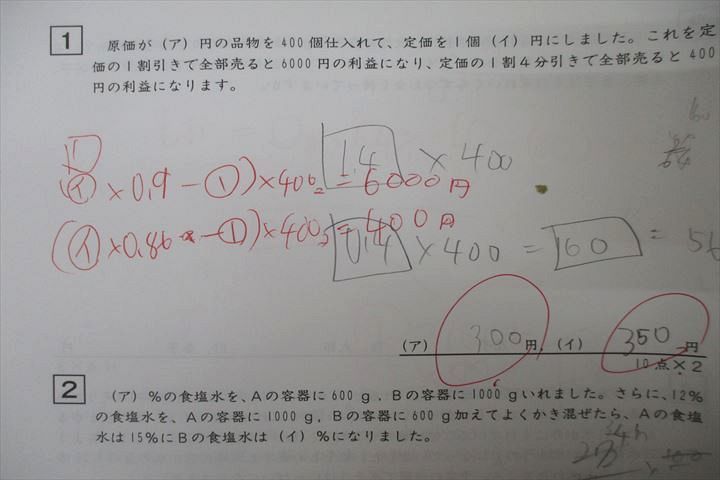 1 原価が（ア）円の品物を400個仕入れて、定価を1個（イ）円にしました。これを定
価の1割引きで全部売ると6000円の利益になり、定価の1割4分引きで全部売ると400
円の利益になります。
1.4 × 400
(イ × 0.9 − ①) × 400 = 6000円
(イ × 0.86 − ①) × 400 = 400円
0.4 × 400 = 160 = 56
（ア） 300 円，（イ） 350 円
10点×2
2 （ア）％の食塩水を、Aの容器に600g，Bの容器に1000gいれました。さらに、12％
の食塩水を、Aの容器に1000g，Bの容器に600g加えてよくかき混ぜたら、Aの食塩
水は15％にBの食塩水は（イ）％になりました。